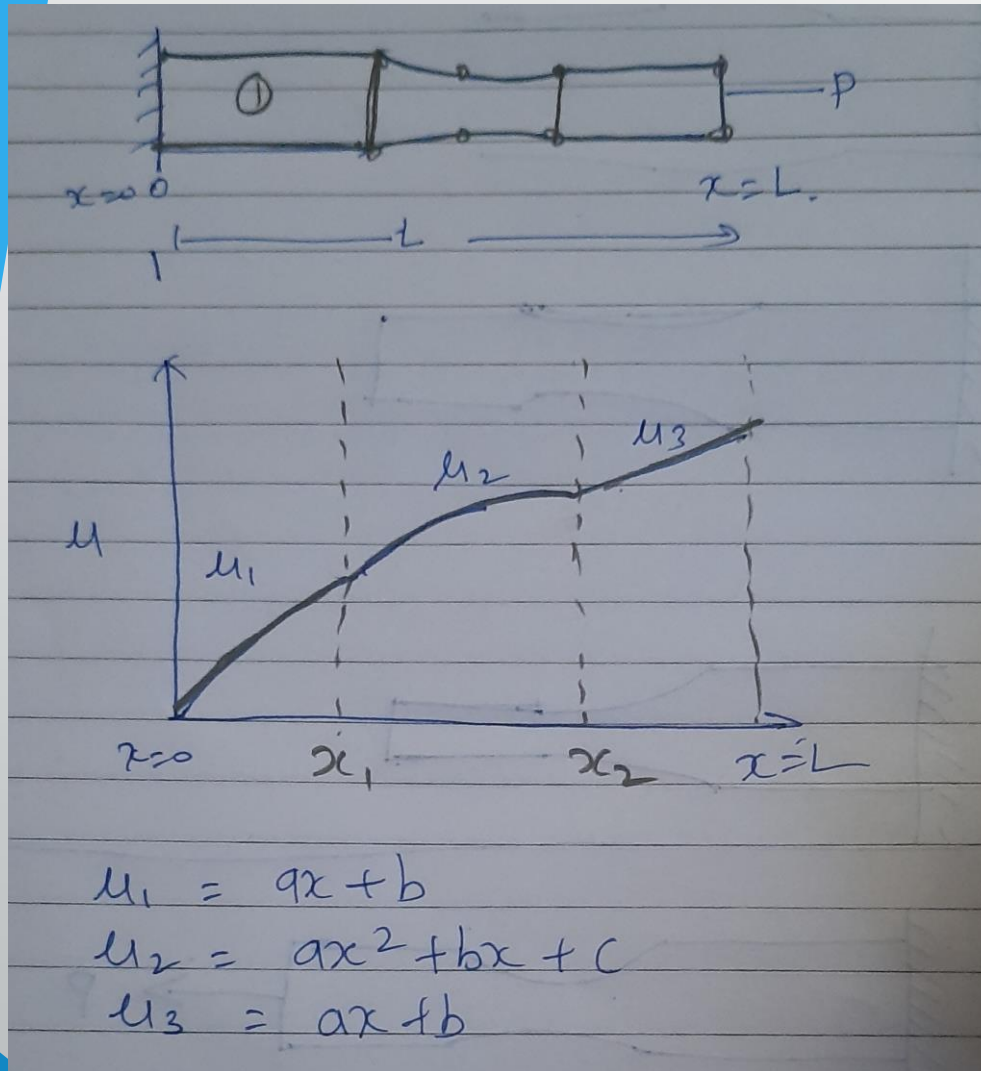 ①
P
x=0 0
x=L.
L
u
u1
u2
u3
x=0
x1
x2
x=L
u1 = ax+b
u2 = ax2+bx+c
u3 = ax+b